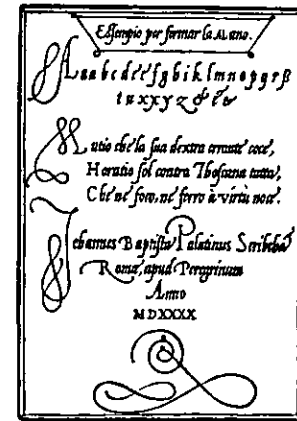 Essempio per fermar la Mano.
A a a b c d e é f g h i k l m n o p q r ß
t u x x y z & & &
Mutio che la sua dextra errante coce,
Horatio sol contra Thoscana tutta,
Che né foco, né ferro à virtù noce.
Iohannes Baptista Palatinus Scribebat
Romæ, apud Peregrinum
Anno
MDXXXX